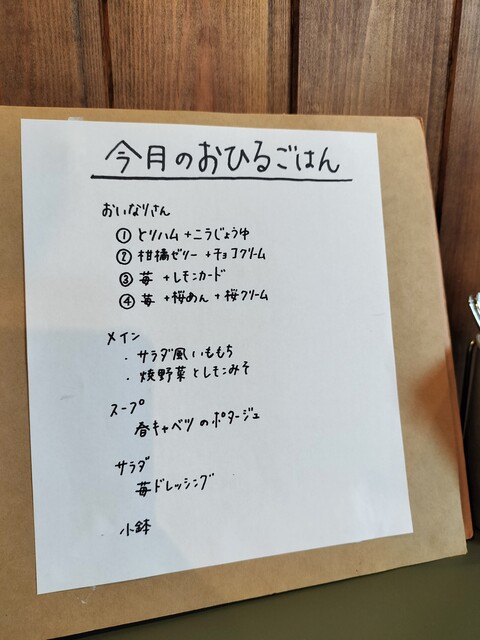 今月のおひるごはん
おいなりさん
① とりハム+こうじょうゆ
② 柑橘ゼリー +チョコクリーム
③ 苺 +レモンカード
④ 苺 +桜あん + 桜クリーム
メイン
・サラダ風いももち
・焼野菜とレモンみそ
スープ
春キャベツのポタージュ
サラダ
苺ドレッシング
小鉢